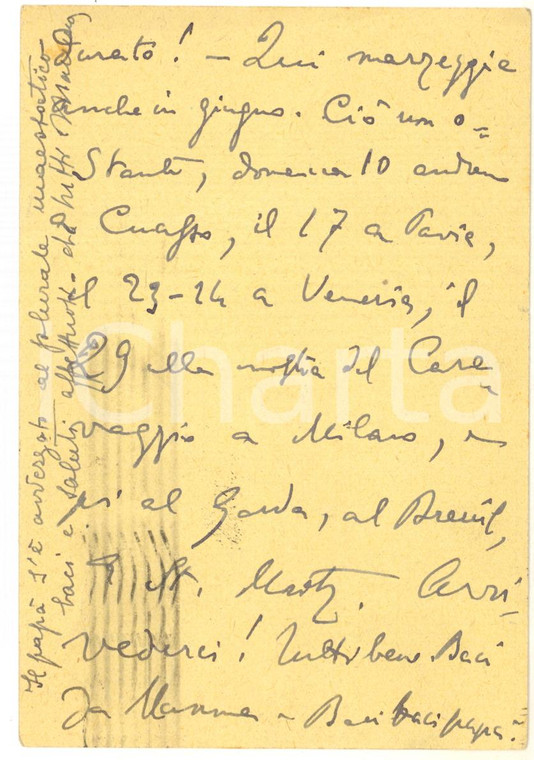 durato! – Qui marzeggia
anche in giugno. Ciò non o=
stante, domenica 10 andremo
Cuasso, il 17 a Pavia,
il 23-24 a Venezia, il
29 alla mostra del Cara=
vaggio a Milano,
poi al Garda, al Breuil,
a St. Moritz. Arri=
vederci! Tutti bene. Baci
da Mamma – Baci baci papà.
Il papà s'è avvezzato al plurale maestatico
baci e saluti affettuosi da tutti
Charta